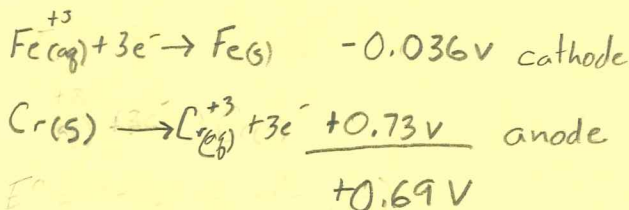 Fe⁺³(aq) + 3e⁻ → Fe(s) -0.036v cathode
Cr(s) → Cr⁺³(aq) + 3e⁻ +0.73v anode
+0.69 V